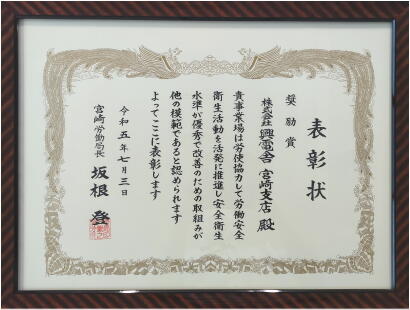 表彰状
奨励賞
株式会社興電舎 宮崎支店 殿
貴事業場は労使協力して労働安全
衛生活動を活発に推進し安全衛生
水準が優秀で改善のための取組みが
他の模範であると認められます
よってここに表彰します
令和五年七月三日
宮崎労働局長 坂根 登